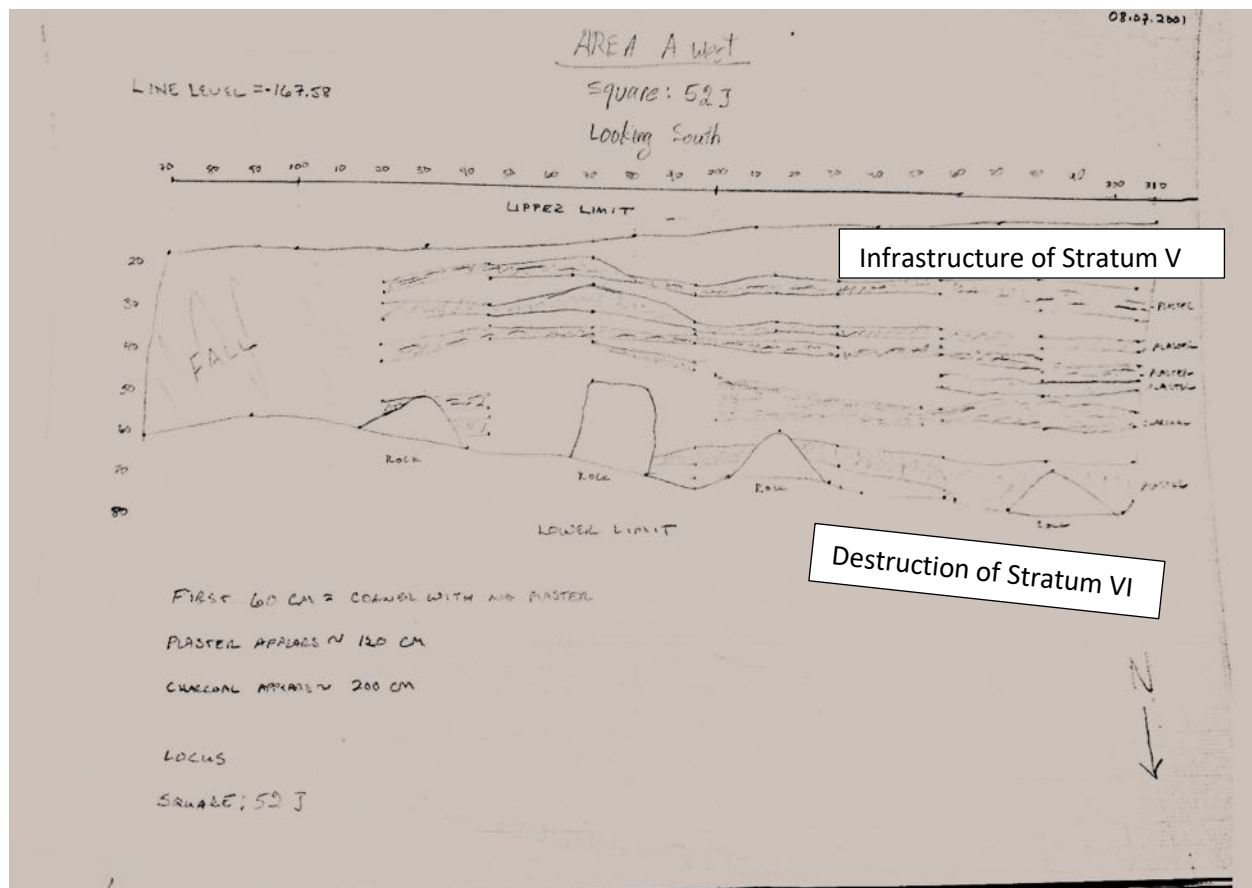 08.07.2001
AREA A West
LINE LEVEL = -167.58
Square: 52 J
Looking South
70 80 90 100 10 20 30 40 50 60 70 80 90 200 10 20 30 40 50 60 70 80 90 300 310
UPPER LIMIT
Infrastructure of Stratum V
20
30
PLASTER
FALL
40
PLASTER
PLASTER
50
PLASTER
60
CHARCOAL
ROCK
70
ROCK
ROCK
80
LOWER LIMIT
Destruction of Stratum VI
FIRST 60 CM = CORNER WITH NO PLASTER
PLASTER APPEARS ~ 120 CM
CHARCOAL APPEARS ~ 200 CM
N
LOCUS
SQUARE: 52 J